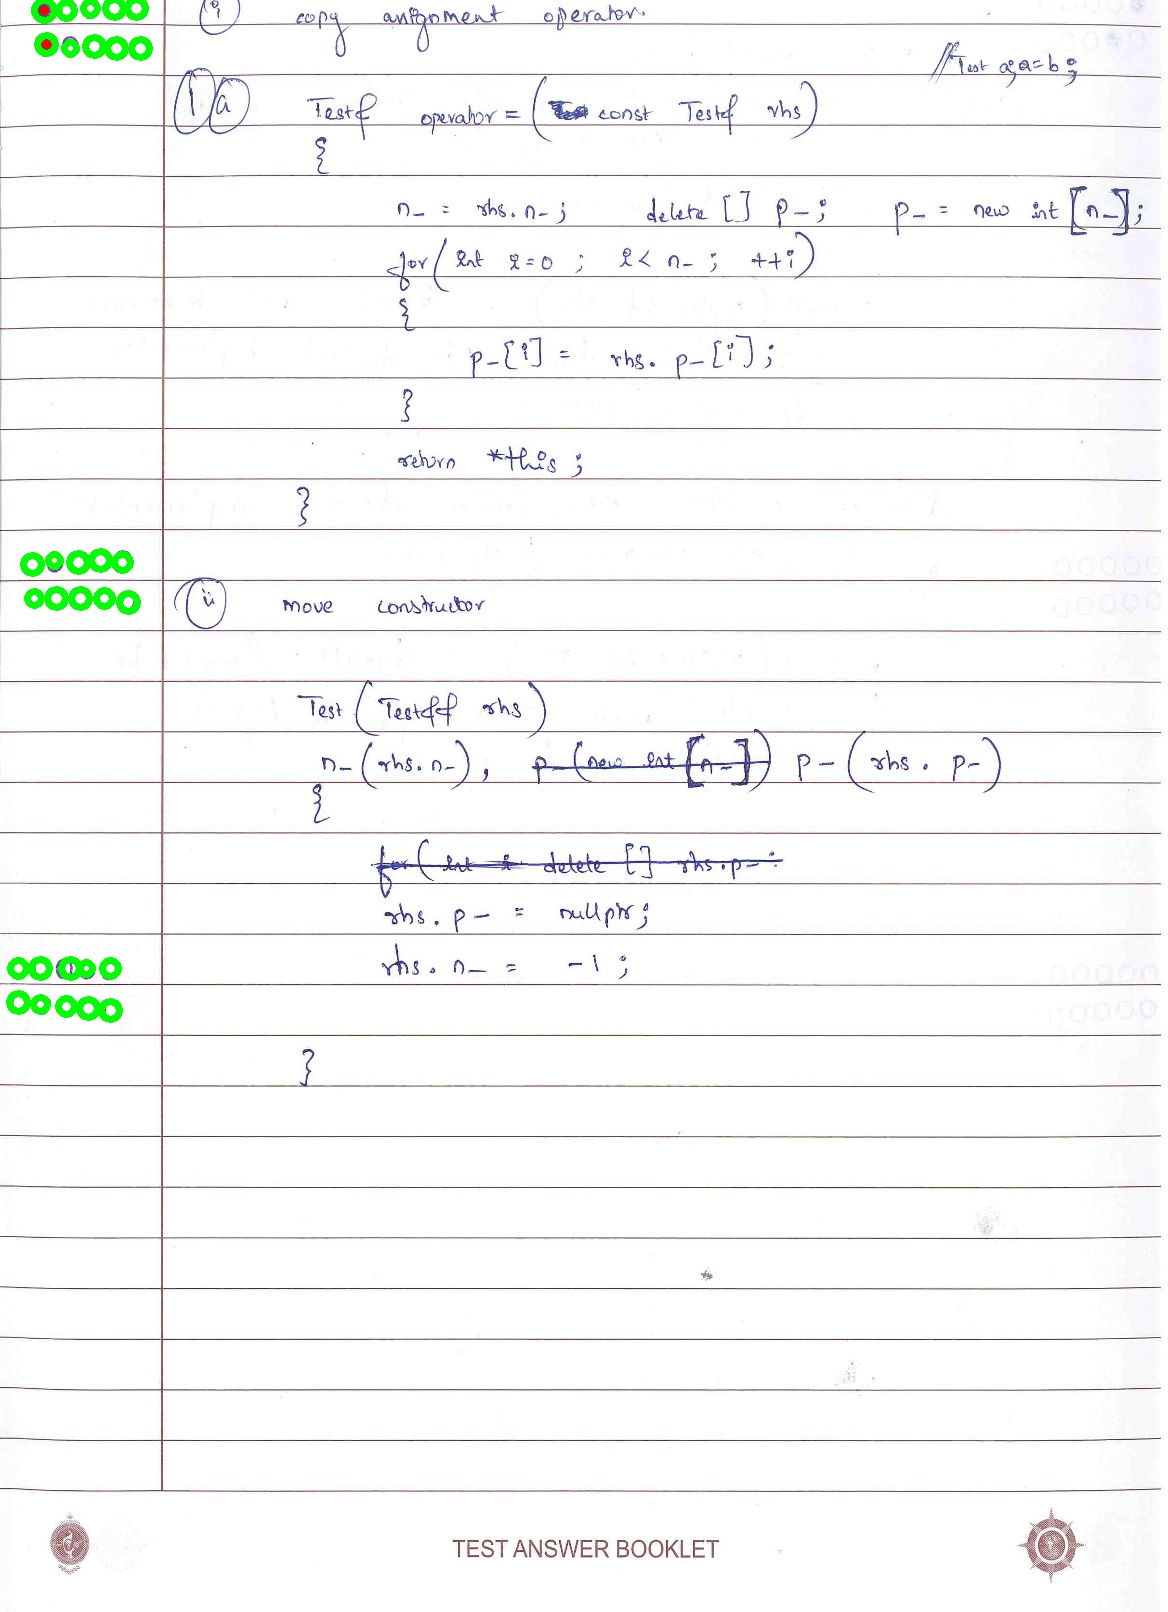 i copy assignment operator.
//Test a; a=b;
1 a Test& operator = (const Test& rhs)
{
n_ = rhs.n_; delete [] p_; p_ = new int [n_];
for (int i=0 ; i< n_ ; ++i)
{
p_[i] = rhs. p_[i];
}
return *this;
}
ii move constructor
Test (Test&& rhs)
n_ (rhs.n_), p_ (new int [n_]) p_ (rhs. p_)
{
for (int i delete [] rhs.p_;
rhs. p_ = nullptr;
rhs. n_ = -1 ;
}
TEST ANSWER BOOKLET